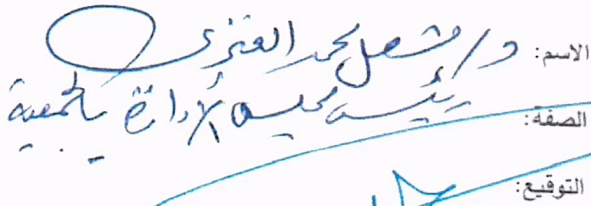 الاسم: د/ مشعل محمد العنزي
الصفة: رئيس مجلس الإدارة بالجمعية
التوقيع: